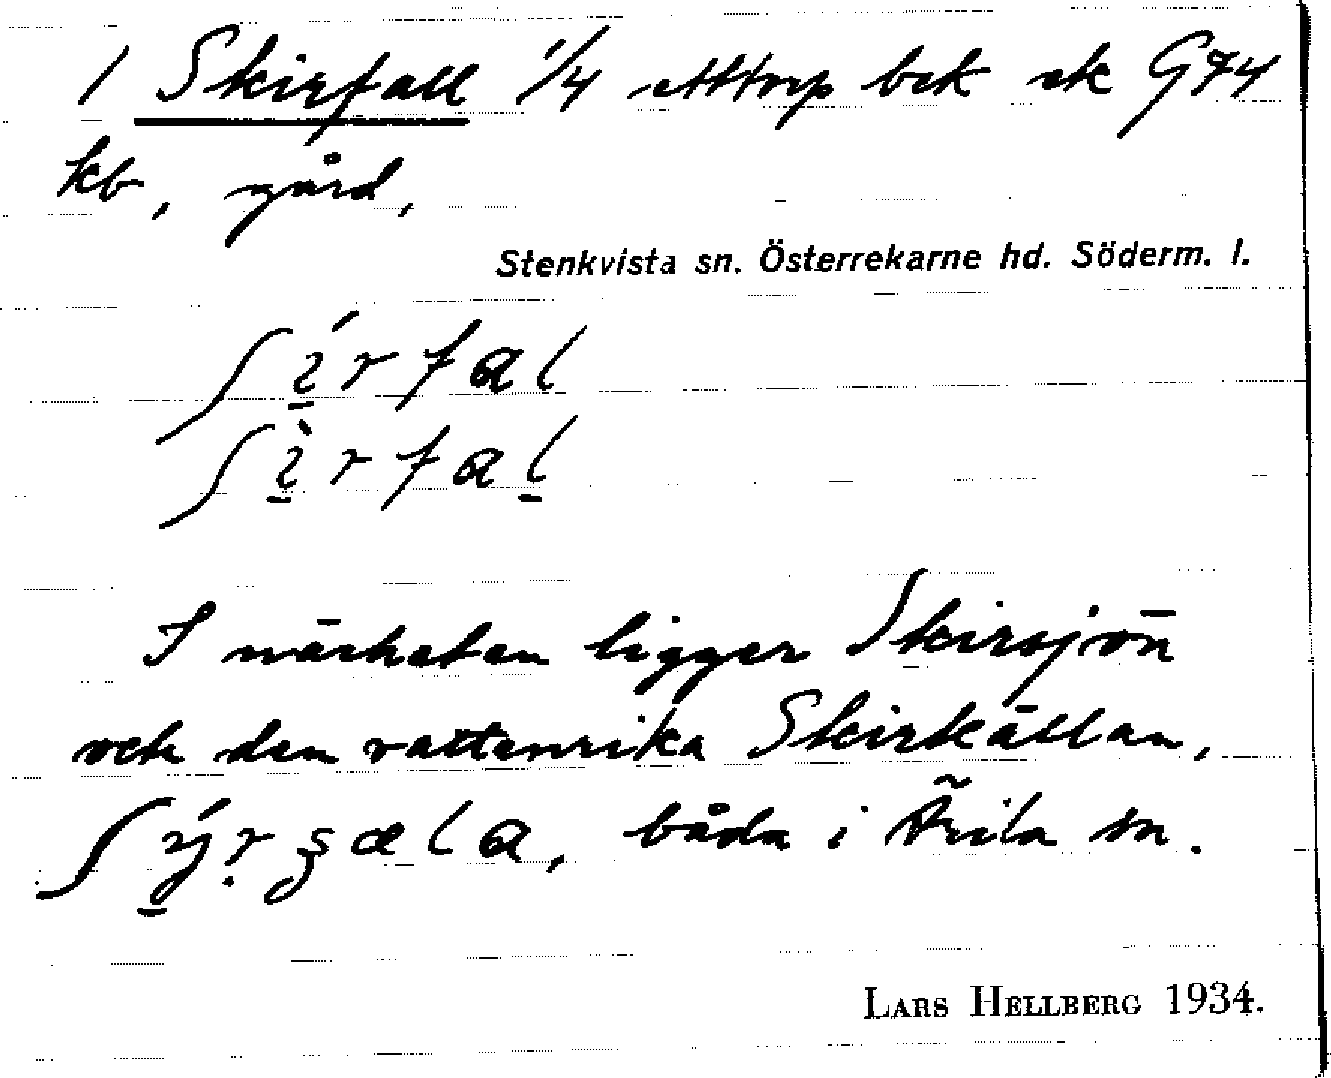 1 Skirfall 1/4 etttorp bek sk G74
kb, gård,
Stenkvista sn. Österrekarne hd. Söderm. l.
I närheten ligger Skirsjön
och den vattenrika Skirkällan,
båda i Ärila sn.
LARS HELLBERG 1934.